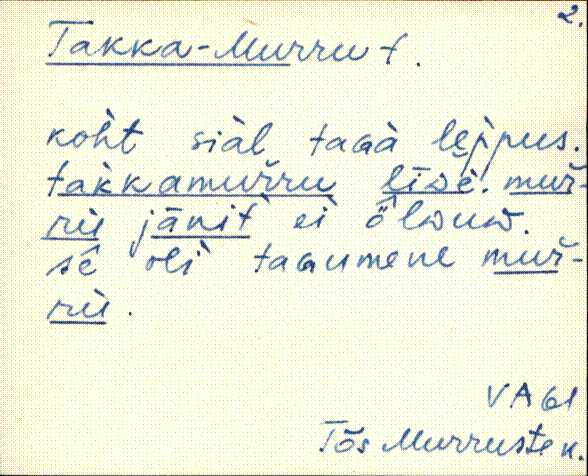 2.
Takka-Murru t.
koht siàl tagà leppus.
tàkkamur̆ru līwè. mur̆-
ru jānit ei ȫlwuw.
sê oli tagumene mur̆-
ru.
VA 61
Tõs Murruste k.